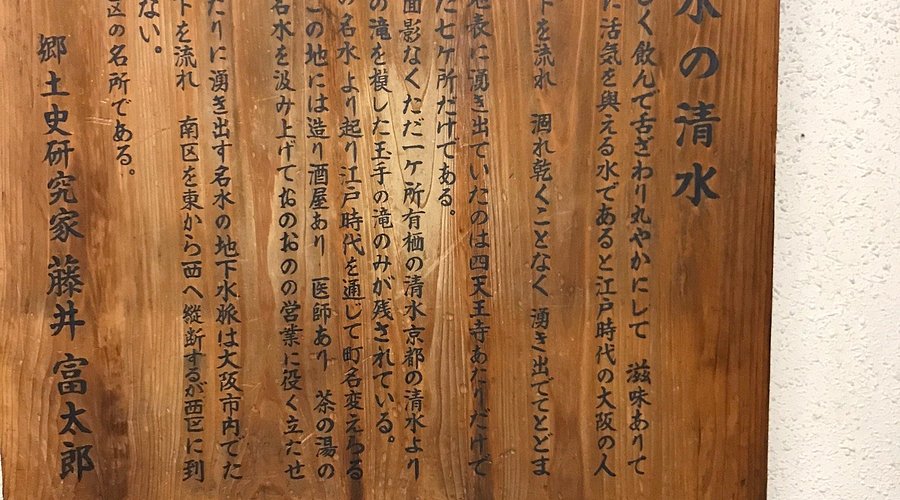 水の清水
しく飲んで舌ざわり丸やかにして 滋味ありて
に活気を與える水であると江戸時代の大阪の人
下を流れ 涸れ乾くことなく 湧き出でてとどま
地表に湧き出ていたのは四天王寺あたりだけで
た七ケ所だけである。
面影なくただ一ケ所有栖の清水京都の清水より
の滝を模した玉手の滝のみが残されている。
の名水より起り江戸時代を通じて町名変えらる
この地には造り酒屋あり 医師あり 茶の湯の
名水を汲み上げておのおのの営業に役く立たせ
たりに湧き出す名水の地下水脈は大阪市内でた
下を流れ 南区を東から西へ縦断するが西区に到
ない。
区の名所である。
郷土史研究家 藤井 富太郎